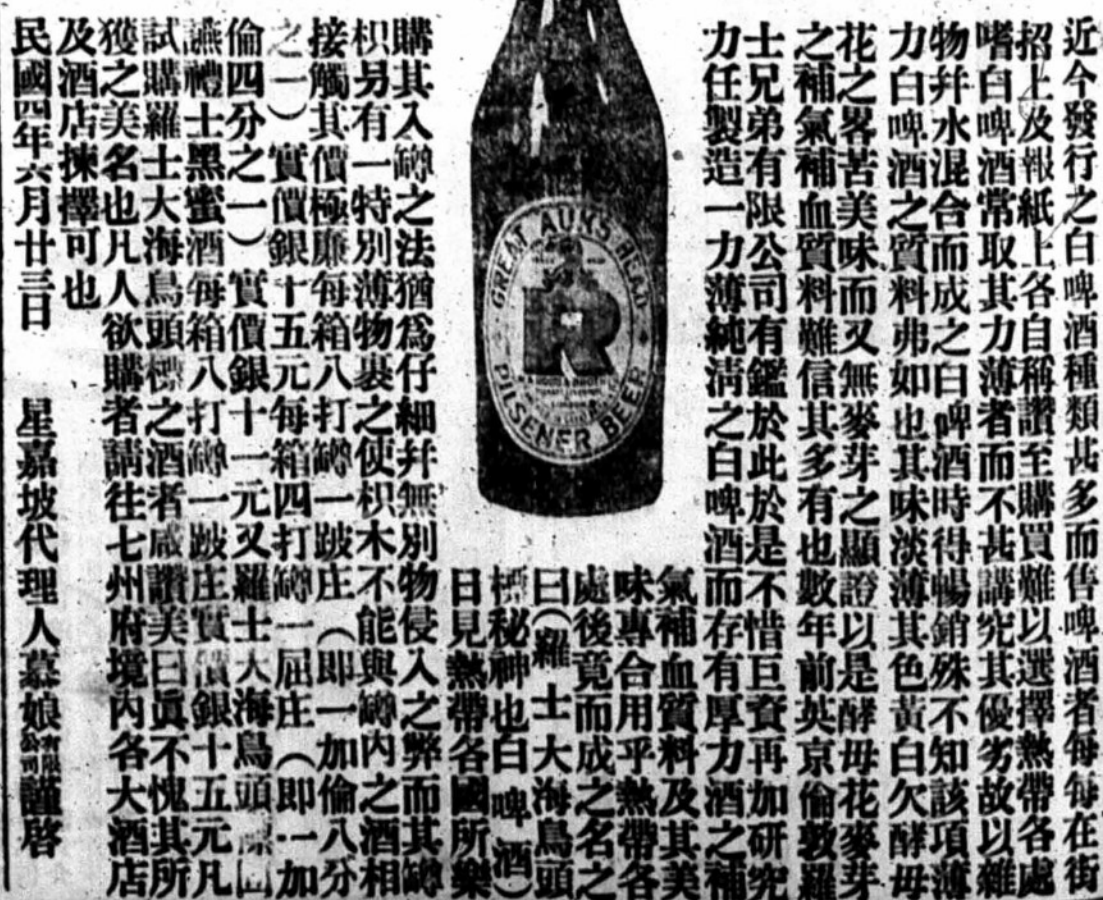 近今發行之白啤酒種類甚多而售啤酒者每每在街
招上及報紙上各自稱讚至購買難以選擇熱帶各處
嗜白啤酒常取其力薄者而不甚講究其優劣故以雜
物幷水混合而成之白啤酒時得暢銷殊不知該項薄
力白啤酒之質料弗如也其味淡薄其色黃白欠酵母
花之畧苦美味而又無麥芽之顯證以是酵母花麥芽
之補氣補血質料難信其多有也數年前英京倫敦羅
士兄弟有限公司有鑑於此於是不惜巨資再加研究
力任製造一力薄純淸之白啤酒而存有厚力酒之補
氣補血質料及其美
味專合用乎熱帶各
處後竟而成之名之
曰（羅士大海鳥頭
標秘神也白啤酒）
日見熱帶各國所樂
GREAT AUK'S HEAD
R
PILSENER BEER
購其入罇之法猶爲仔細幷無別物侵入之弊而其罇
枳另有一特別薄物裹之使枳木不能與罇內之酒相
接觸其價極廉每箱八打罇一跛庄（即一加倫八分
之一）實價銀十五元每箱四打罇一屈庄（即一加
倫四分之一）實價銀十一元又羅士大海鳥頭標
讌禮士黑蜜酒每箱八打罇一跛庄實價銀十五元凡
試購羅士大海鳥頭標之酒者咸讚美曰眞不愧其所
獲之美名也凡人欲購者請往七州府境內各大酒店
及酒店揀擇可也
民國四年六月廿三日 星嘉坡代理人慕娘有限公司謹啓